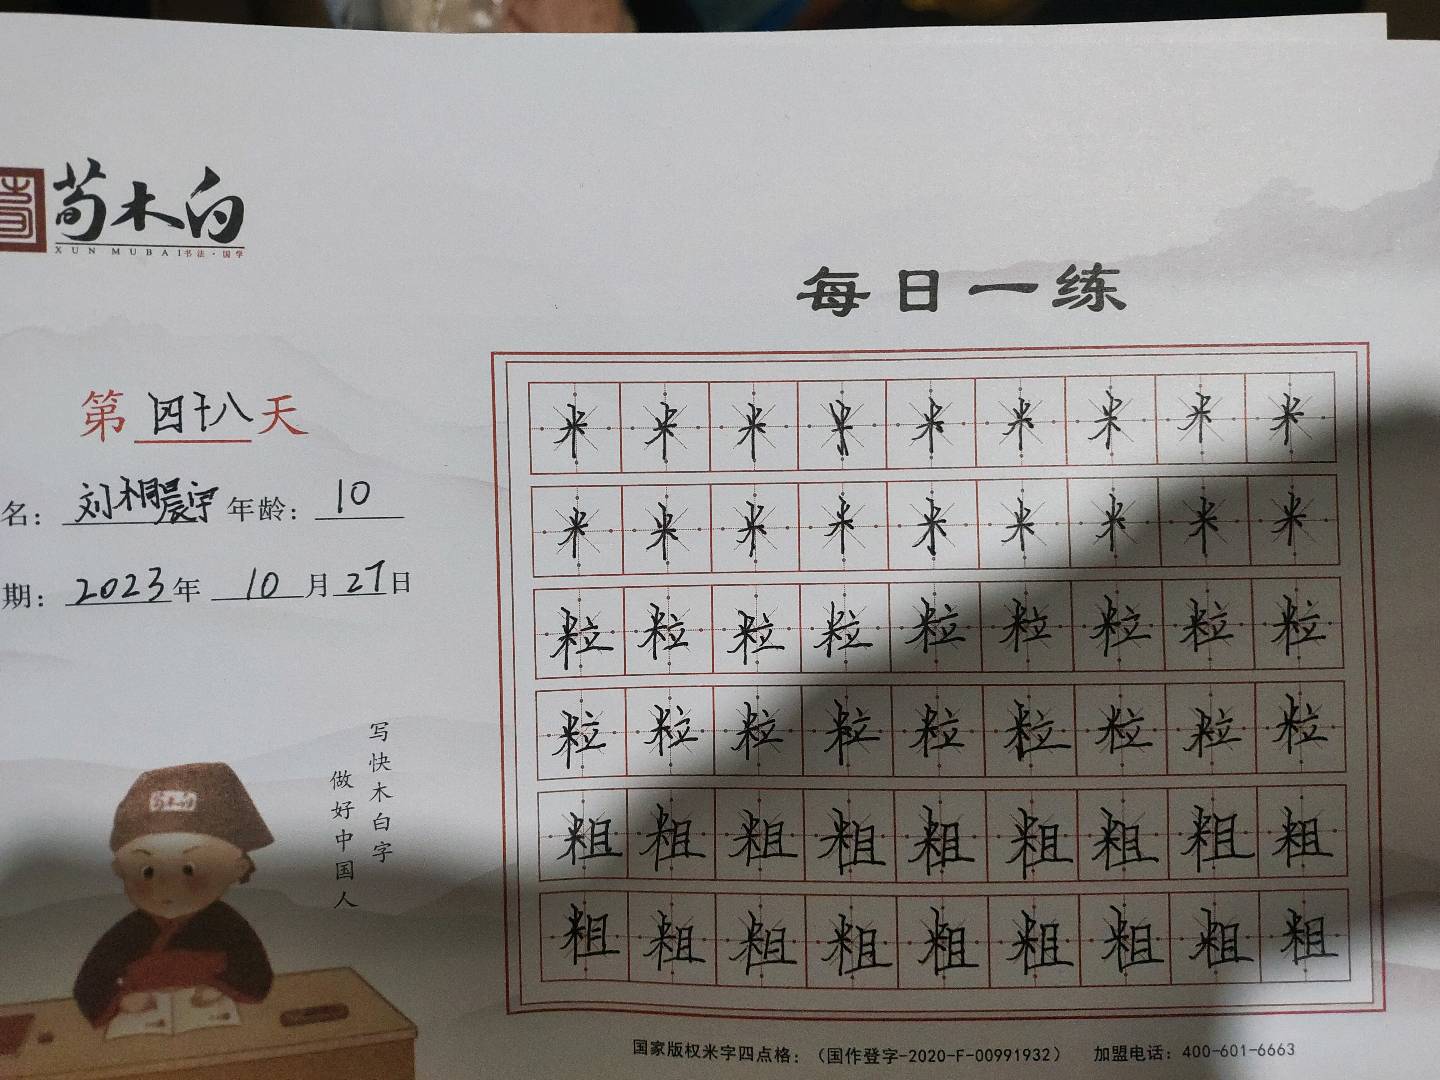 荀木白
XUN MUBAI书法·国学
每日一练
第四十八天
名：刘桐晨宇 年龄：10
期：2023年10月27日
米米米米米米米米米
米米米米米米米米米
粒粒粒粒粒粒粒粒粒
粒粒粒粒粒粒粒粒粒
粗粗粗粗粗粗粗粗粗
粗粗粗粗粗粗粗粗粗
写快木白字
做好中国人
荀木白
国家版权米字四点格：（国作登字-2020-F-00991932） 加盟电话：400-601-6663